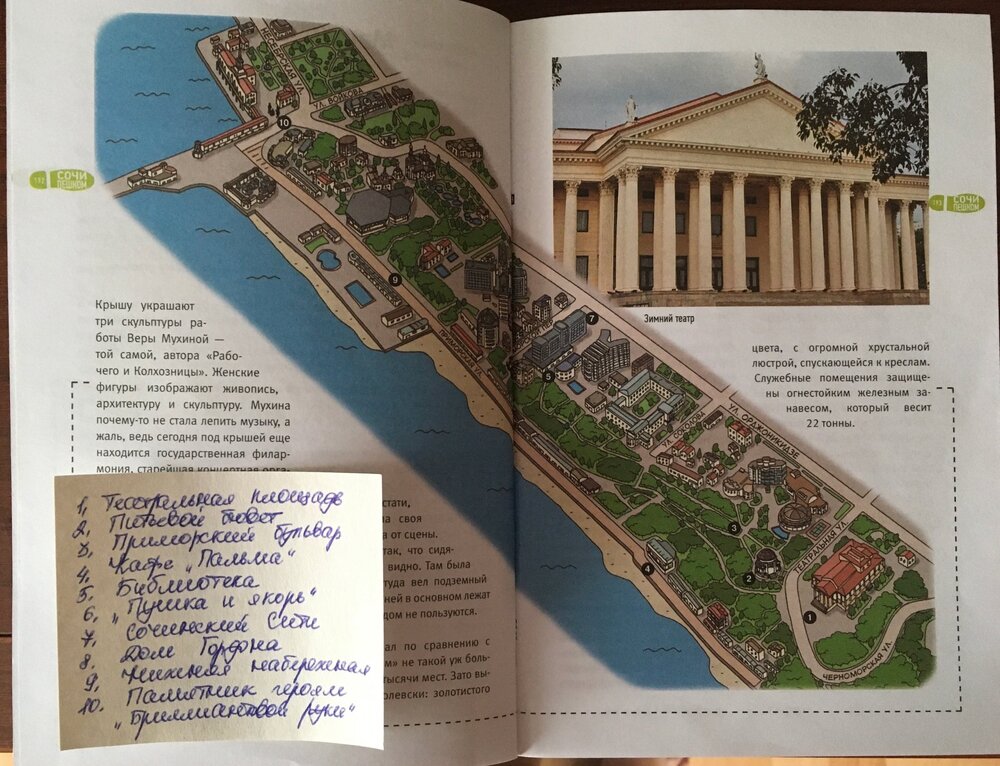 НЕСЕБРСКАЯ УЛ.
УЛ. ВОЙКОВА
10
192 СОЧИ
ПЕШКОМ
9
ПРИМОРСКАЯ УЛ.
Крышу украшают
три скульптуры ра-
боты Веры Мухиной —
той самой, автора «Рабо-
чего и Колхозницы». Женские
фигуры изображают живопись,
архитектуру и скульптуру. Мухина
почему-то не стала лепить музыку, а
жаль, ведь сегодня под крышей еще
находится государственная филар-
мония, старейшая концертная орга-
стати,
ла своя
а от сцены.
так, что сидя-
видно. Там была
туда вел подземный
ней в основном лежат
дом не пользуются.
ал по сравнению с
м» не такой уж боль-
тысячи мест. Зато вы-
олевски: золотистого
1. Театральная площадь
2. Питьевой бювет
3. Приморский бульвар
4. Кафе „Пальма“
5. Библиотека
6. „Пушка и якорь“
7. Сочинский Сити
8. Дом Гордона
9. Нижняя набережная
10. Памятник героям
„Бриллиантовой руки“
193 СОЧИ
ПЕШКОМ
Зимний театр
цвета, с огромной хрустальной
люстрой, спускающейся к креслам.
Служебные помещения защище-
ны огнестойким железным за-
навесом, который весит
22 тонны.
7
5
УЛ. ОРДЖОНИКИДЗЕ
УЛ. СОКОЛОВА
3
ТЕАТРАЛЬНАЯ УЛ.
4
2
1
ЧЕРНОМОРСКАЯ УЛ.